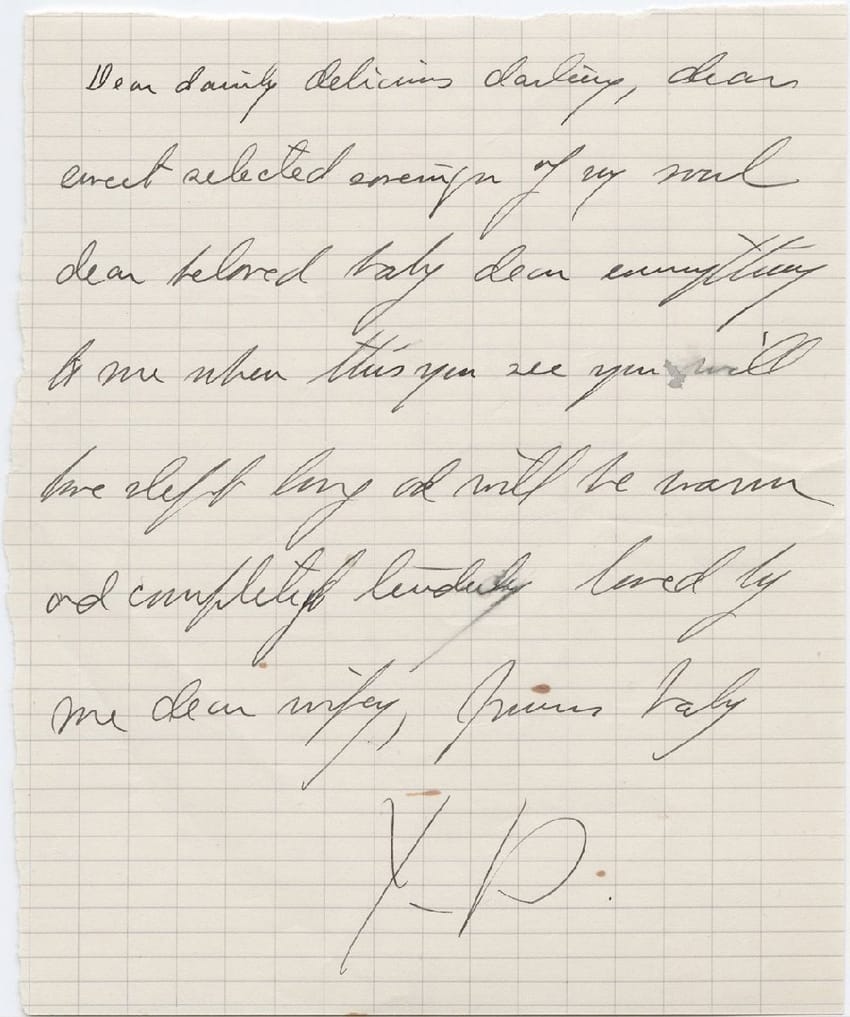 Dear dainty delicious darling, dear
sweet selected sovereign of my soul
dear beloved baby dear everything
to me when this you see you will
have slept long and will be warm
and completely tenderly loved by
me dear wifey, precious baby
Y.D.